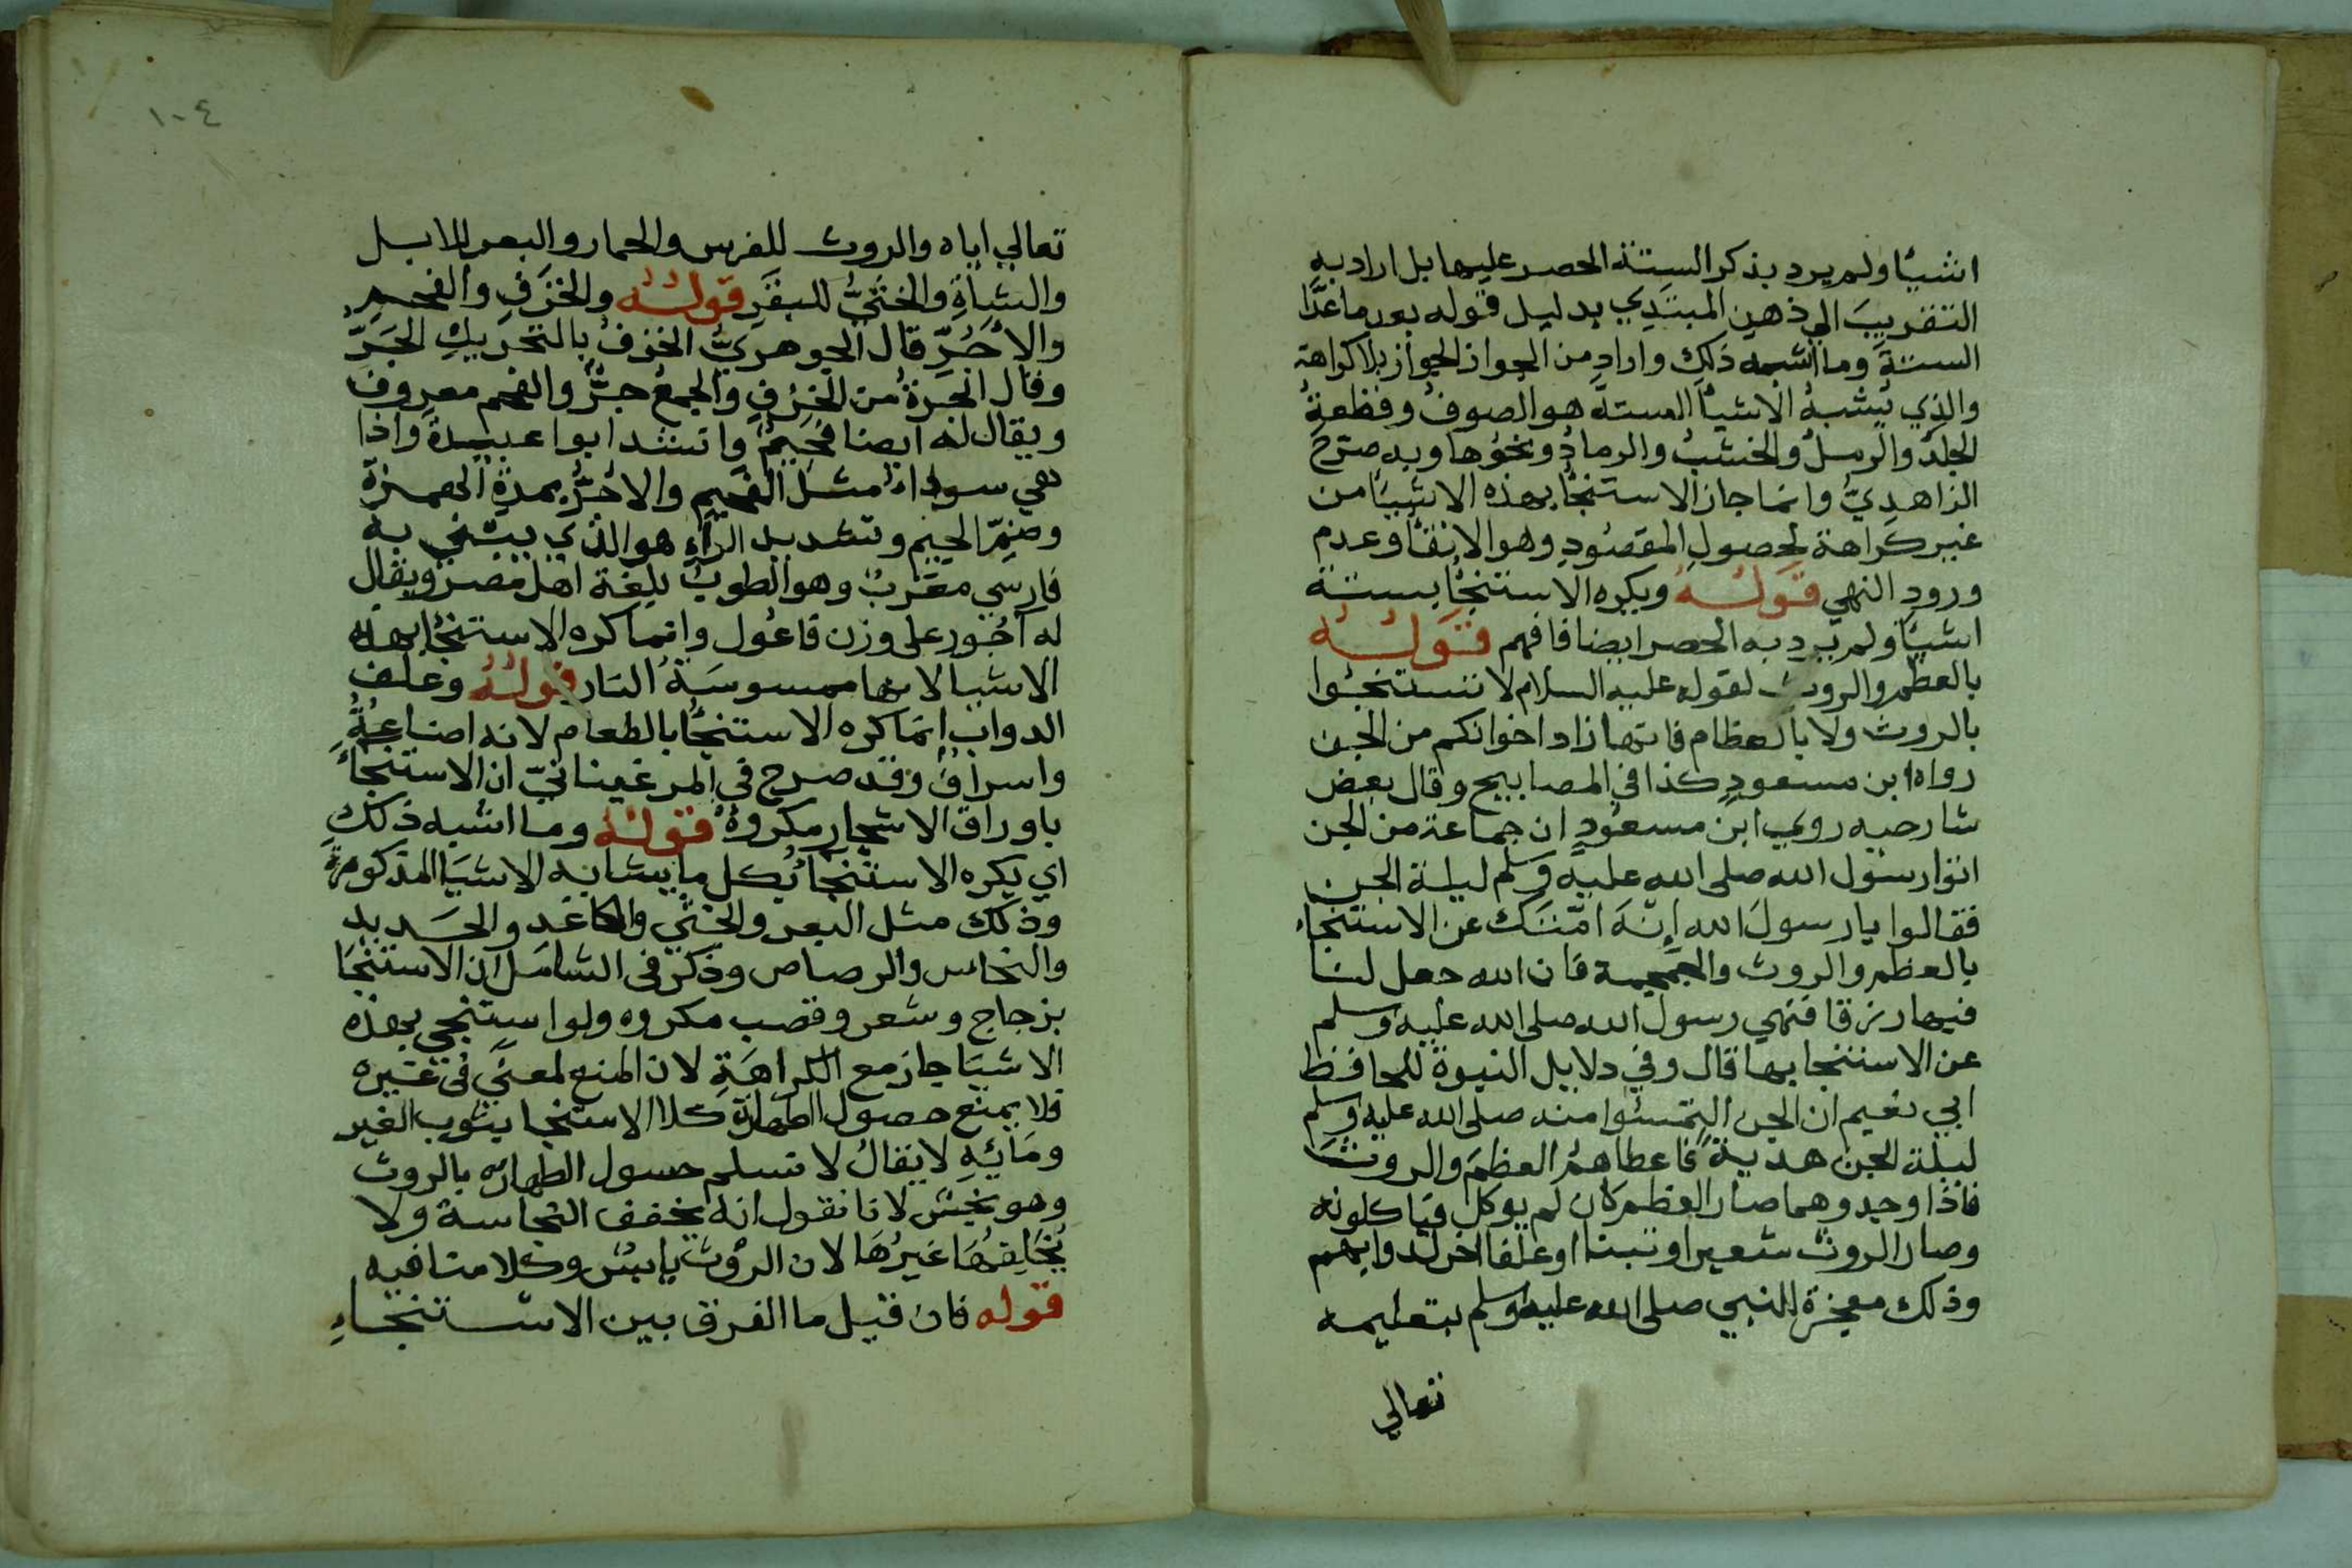 اشيأ ولم يرد بذكر الستة الحصر عليها بل اراد به
التقريب الي ذهن المبتدي بدليل قوله بعد ما عدّا
الستة وما اشبه ذلك واراد من الجواز الجواز بلا كراهة
والذي يشبه الاشيأ الستة هو الصوف وقطعة
الجلد والرمل والخشب والرماد ونحوها وبه صرّح
الزاهديّ وانما جاز الاستنجأ بهذه الاشيأ من
غير كراهة لحصول المقصود وهو الانقأ وعدم
ورود النهي قوله ويكره الاستنجأ بستة
اشيأ ولم يرد به الحصر ايضا فافهم قوله
بالعظم والروث لقوله عليه السلام لا تستنجئوا
بالروث ولا بالعظام فانها زاد اخوانكم من الجن
رواه ابن مسعود كذا في المصابيح وقال بعض
شارحيه روي ابن مسعود ان جماعة من الجن
اتوا رسول الله صلى الله عليه وسلم ليلة الجن
فقالوا يا رسول الله إنه امتك عن الاستنجاء
بالعظم والروث والجمجمة فان الله جعل لنا
فيها رزقا فنهي رسول الله صلى الله عليه وسلم
عن الاستنجا بها قال وفي دلايل النبوة للحافظ
ابي نعيم ان الجن التمسوا منه صلى الله عليه وسلم
ليلة الجن هدية فاعطاهم العظم والروث
فاذا وجدوهما صار العظم كان لم يوكل فياكلونه
وصار الروث شعيرا وتبنا او علفا اخر لدوابهم
وذلك معجزة للنبي صلى الله عليه وسلم بتعليمه
تعالي
١٠٤
تعالي اياه والروث للفرس والحمار والبعر للابل
والشاة والخثيّ للبقر قوله والخزف والفحم
والآجرّ قال الجوهريّ الخزف بالتحريك الجرّ
وقال الجرة من الخزف والجمع جرّ والفحم معروف
ويقال له ايضا فحيم وانشد ابوا عبيدة واذا
هي سوداء مثل الفحيم والاجرّ بمدة الهمزة
وضمّ الجيم وتشديد الراء هو الذي يبني به
فارسي معرّب وهو الطوب بلغة اهل مصر ويقال
له آجور على وزن فاعول وانما كره الاستنجأ بهذه
الاشيا لانها ممسوسة النار قوله وعلف
الدواب إنما كره الاستنجأ بالطعام لانه اضاعة
واسراف وقد صرح في المرغينانيّ ان الاستنجاء
باوراق الاشجار مكروه قوله وما اشبه ذلك
اي يكره الاستنجأ بكل ما يشابه الاشيا المذكورة
وذلك مثل البعر والخثي والكاغد والحديد
والنحاس والرصاص وذكر في الشامل ان الاستنجا
بزجاج وشعر وقصب مكروه ولو استنجي بهذه
الاشيا جاز مع الكراهة لان المنع لمعني في غيره
فلا يمنع حصول الطهارة كلا الاستنجا بثوب الغير
ومائه لا يقال لا نسلم حسول الطهارة بالروث
وهو نجس لانا نقول انه يخفف النجاسة ولا
يخلفها غيرها لان الروث يابس وكلامنا فيه
قوله فان قيل ما الفرق بين الاستنجاء